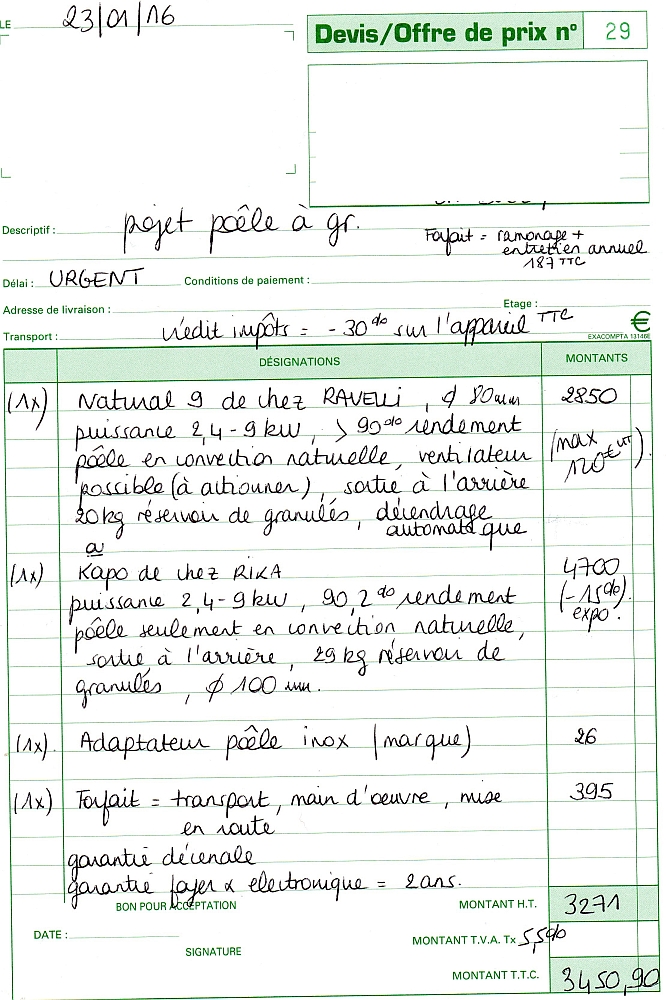 LE 23/01/16
Devis/Offre de prix n° 29
Descriptif : projet poêle à gr.
Forfait = ramonage +
entretien annuel
187 TTC
Délai : URGENT Conditions de paiement :
Adresse de livraison : Etage :
Transport : crédit impôts = - 30 % sur l'appareil TTC
€
EXACOMPTA 13146E
DÉSIGNATIONS MONTANTS
(1x) Natural 9 de chez RAVELLI, ϕ 80mm 2850
puissance 2,4-9 kW, > 90 % rendement
poêle en convection naturelle, ventilateur (max
possible (à actionner), sortie à l'arrière 120€ HT).
20kg réservoir de granulés, décendrage
automatique
(1x) Kapo de chez RIKA 4700
puissance 2,4-9 kW, 90,2 % rendement (-15%)
poêle seulement en convection naturelle, expo.
sortie à l'arrière, 29 kg réservoir de
granulés, ϕ 100 mm.
(1x). Adaptateur poêle inox (marque) 26
(1x) Forfait = transport, main d'oeuvre, mise 395
en route
garantie décenale
garantie foyer & electronique = 2 ans.
BON POUR ACCEPTATION MONTANT H.T. 3271
DATE : MONTANT T.V.A. Tx 5,5%
SIGNATURE
MONTANT T.T.C. 3450,90